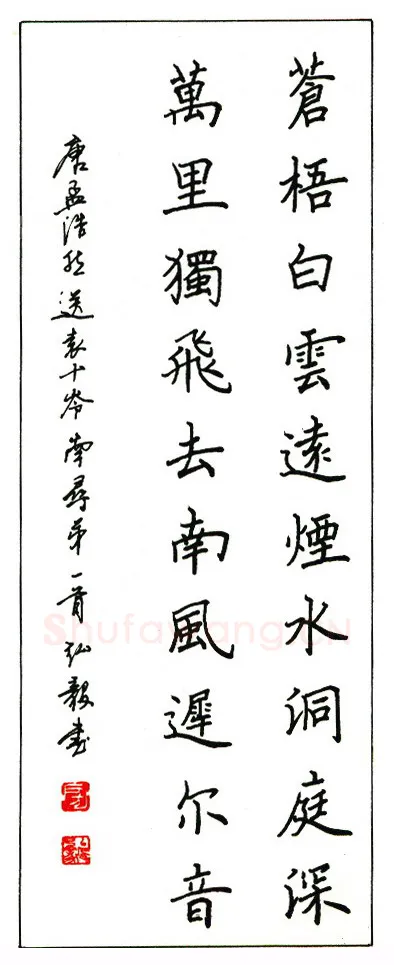 蒼梧白雲遠煙水洞庭深
萬里獨飛去南風遲尔音
唐孟浩然送袁十岑南尋弟一首弘毅書